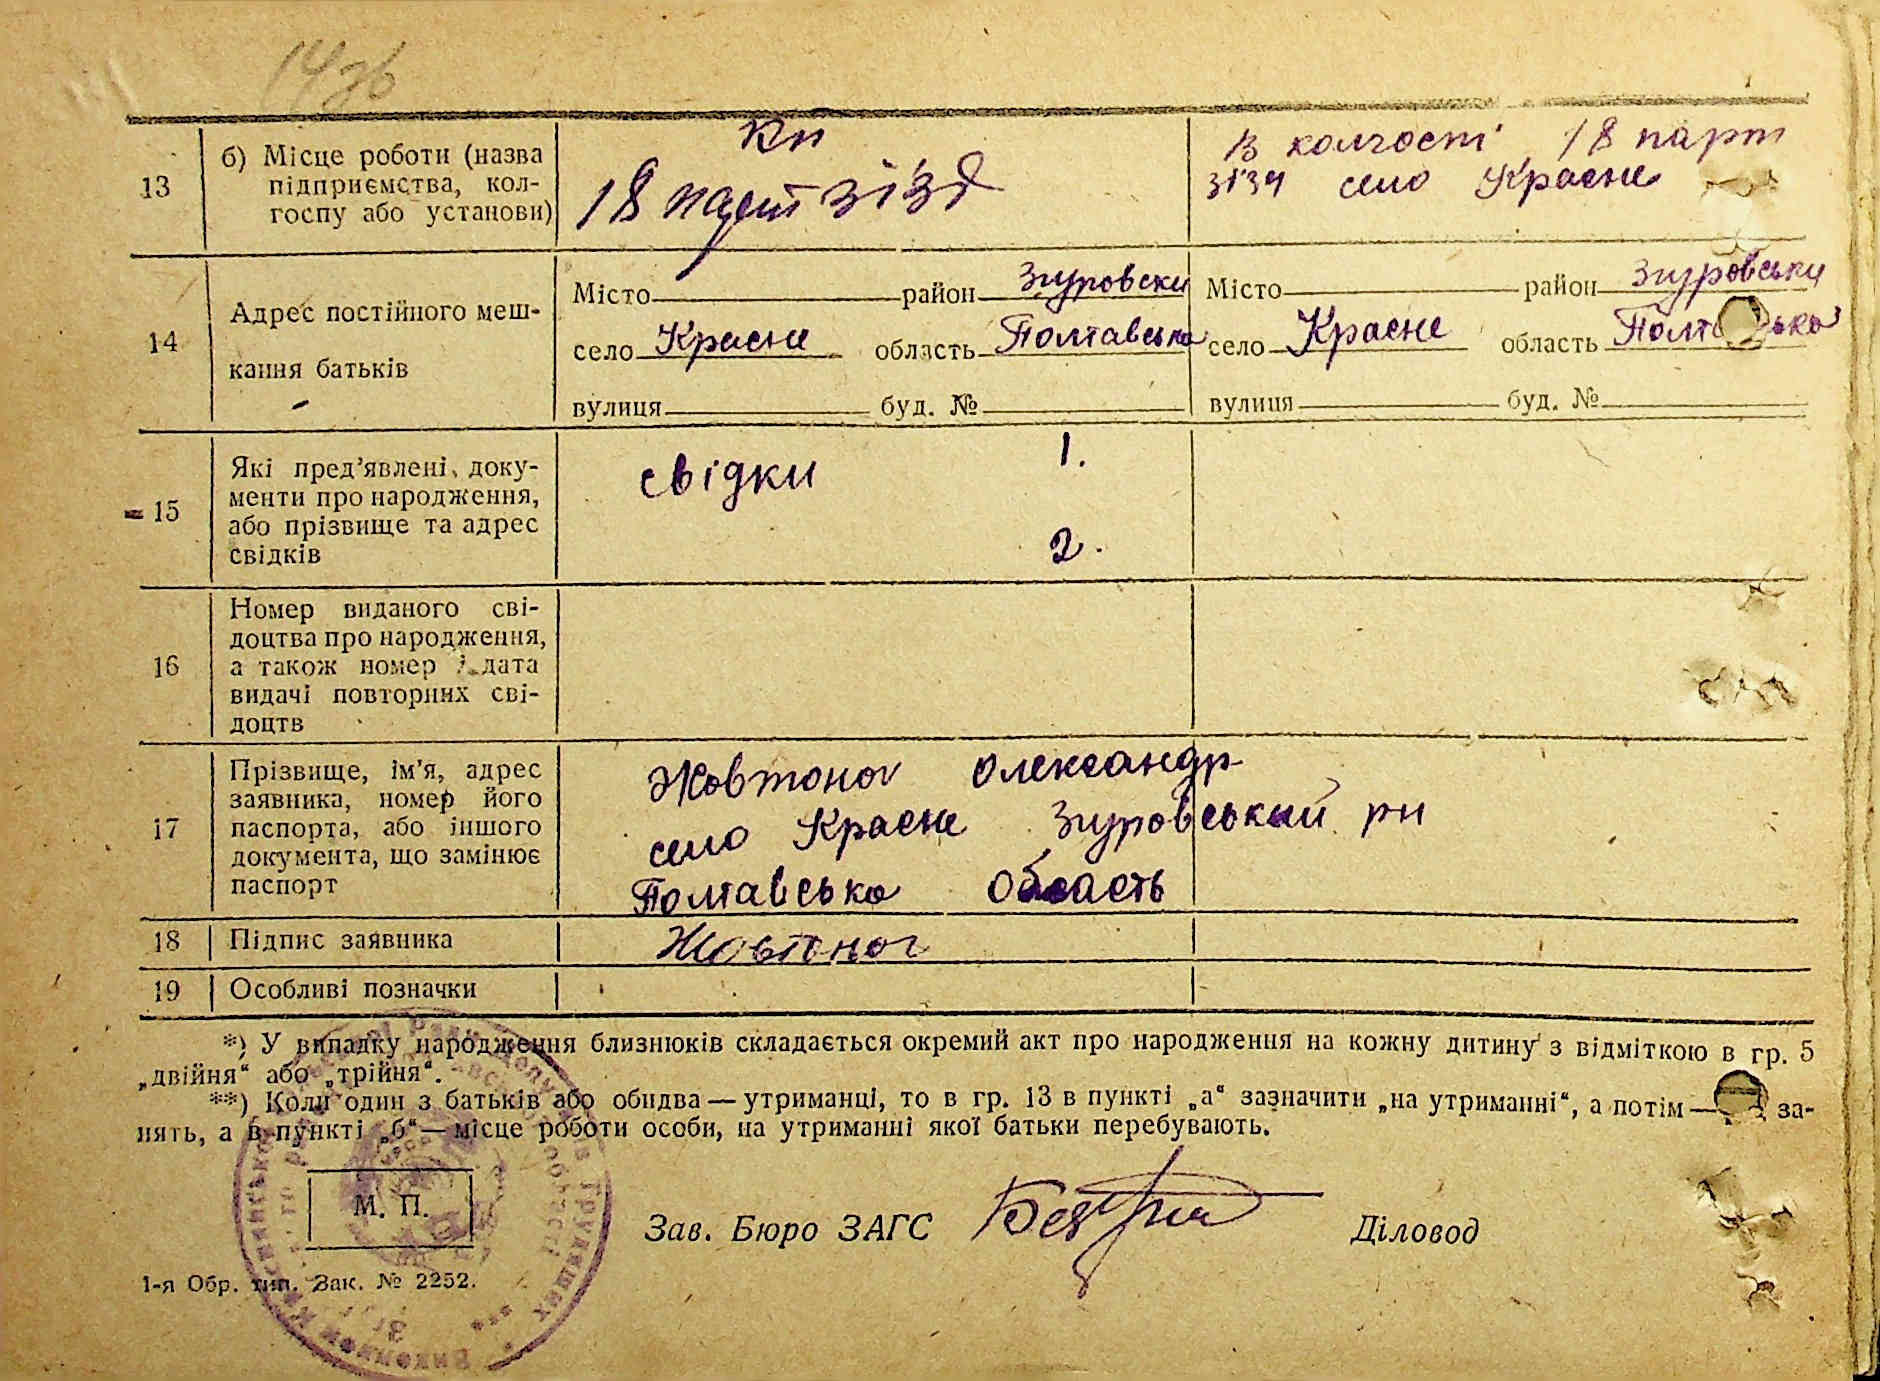 13
б) Місце роботи (назва
підприємства, кол-
госпу або установи)
кп
18 парт зізд
в колгості 18 парт
зізд село Красне
14
Адрес постійного меш-
кання батьків
Місто район Згуровски
село Красне область Полтавська
вулиця буд. №
Місто район Згуровськи
село Красне область Полтавська
вулиця буд. №
15
Які пред’явлені доку-
менти про народження,
або прізвище та адрес
свідків
свідки 1.
2.
16
Номер виданого сві-
доцтва про народження,
а також номер і дата
видачі повторних сві-
доцтв
17
Прізвище, ім’я, адрес
заявника, номер його
паспорта, або іншого
документа, що замінює
паспорт
Жовтоног Олександр
село Красне Згуровський рн
Полтавська Область
18 Підпис заявника Жовтоног
19 Особливі позначки
*) У випадку народження близнюків складається окремий акт про народження на кожну дитину з відміткою в гр. 5
„двійня“ або „трійня“.
**) Коли один з батьків або обидва — утриманці, то в гр. 13 в пункті „а“ зазначити „на утриманні“, а потім — за-
нять, а в пункті „б“ — місце роботи особи, на утриманні якої батьки перебувають.
М. П.
Зав. Бюро ЗАГС Діловод
1-я Обр. тип. Зак. № 2252.